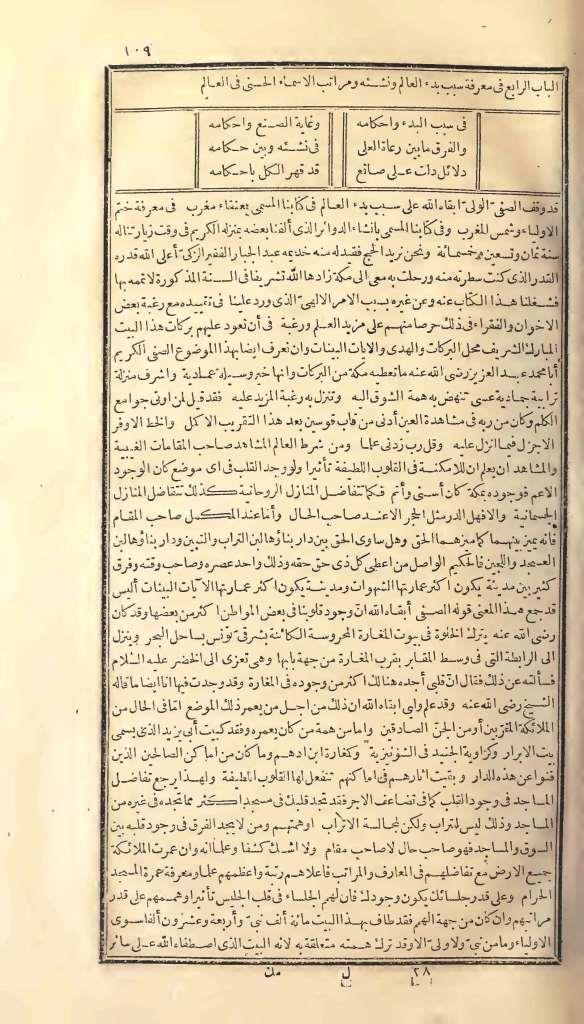 ١٠٩
الباب الرابع فى معرفة سبب بدء العالم ونشئه ومراتب الاسماء الحسنى فى العالم
فى سبب البدء واحكامه وغاية الصنع واحكامه
والفرق مابين رعاة العلى فى نشئه وبين حكامه
دلائل دات على صانع قد قهر الكل باحكامه
قد وقف الصفى الولى أبقاه الله على سبب بدء العالم فى كتابنا المسمى بعنقاء مغرب فى معرفة ختم
الاولياء وشمس المغرب وفى كتابنا المسمى بانشاء الدوائر الذى ألفنا بعضه بمنزله الكريم فى وقت زيارتنا له
سنة ثمان وتسعين وخمسمائة ونحن نريد الحج فقيد له منه خديمه عبد الجبار الفقير الزكى أعلى الله قدره
القدر الذى كنت سطرته منه ورحلت به معى الى مكة زادها الله تشريفا فى السنة المذكورة لاتممه بها
فشغلنا هذا الكتاب عنه وعن غيره بسبب الامر الالهى الذى ورد علينا فى تقييده مع رغبة بعض
الاخوان والفقراء فى ذلك حرصا منهم على مزيد العلم ورغبة فى أن تعود عليهم بركات هذا البيت
المبارك الشريف محل البركات والهدى والآيات البينات وان نعرف أيضا بهذا الموضوع الصفى الكريم
أبا محمد عبد العزيز رضى الله عنه ما تعطيه مكة من البركات وانها خير وسيلة عبادية وأشرف منزلة
ترابية جمادية عسى تنهض به همة الشوق اليه وتنزل به رغبة المزيد عليه فقد قيل لمن أوتى جوامع
الكلم وكان من ربه فى مشاهدة العين أدنى من قاب قوسين بعد هذا التقريب الاكمل والحظ الاوفر
الاجزل فيما انزل عليه وقل رب زدنى علما ومن شرط العالم المشاهد صاحب المقامات الغيبية
والمشاهد ان يعلم ان للامكنة فى القلوب اللطيفة تأثيرا ولو وجد القلب فى اى موضع كان الوجود
الاعم فوجوده بمكة كان أسنى وأتم فكما تتفاضل المنازل الروحانية كذلك تتفاضل المنازل
الجسمانية والا فهل الدر مثل الحجر الا عند صاحب الحال وأما عند المكمل صاحب المقام
فانه يميز بينهما كما ميز بينهما الحق وهل ساوى الحق بين دار بناؤها لبن التراب والتبن ودار بناؤها لبن
العسجد واللجين فالحكيم الواصل من اعطى كل ذى حق حقه وذلك واحد عصره وصاحب وقته وفرق
كثير بين مدينة يكون اكثر عمارتها الشهوات ومدينة يكون اكثر عمارتها الآيات البينات أليس
قد جمع هذا المعنى قوله الصفى أبقاه الله انّ وجود قلوبنا فى بعض المواطن اكثر من بعضها وقد كان
رضى الله عنه يترك الخلوة فى بيوت المغارة المحروسة الكائنة بشرقى تونس بساحل البحر وينزل
الى الرابطة التى فى وسط المقابر بقرب المغارة من جهة بابها وهى تعزى الى الخضر عليه السلام
فسألته عن ذلك فقال انّ قلبى أجده هنالك اكثر من وجوده فى المغارة وقد وجدت فيها انا ايضا ما قاله
الشيخ رضى الله عنه وقد علم ولىي ابقاه الله ان ذلك من اجل من يعمر ذلك الموضع امّا فى الحال من
الملائكة المقربين أو من الجنّ الصادقين وامّا من همة من كان يعمره وفقد كبيت أبى يزيد الذى يسمى
بيت الابرار وكزاوية الجنيد فى الشونيزية وكمغارة ابن ادهم وما كان من اماكن الصالحين الذين
فنوا عن هذه الدار وبقيت آثارهم فى اماكنهم تنفعل لها القلوب اللطيفة ولهذا يرجع تفاضل
المساجد فى وجود القلب كما فى تضاعف الاجر فقد تجد قلبك فى مسجد اكثر مما تجده فى غيره من
المساجد وذلك ليس للتراب ولكن لمجالسة الاتراب او همتهم ومن لا يجد الفرق فى وجود قلبه بين
السوق والمساجد فهو صاحب حال لا صاحب مقام ولا اشك كشفا وعلما انه وان عمرت الملائكة
جميع الارض مع تفاضلهم فى المعارف والمراتب فاعلاهم رتبة واعظمهم علما ومعرفة عمرة المسجد
الحرام وعلى قدر جلسائك يكون وجودك فان لهمم الجلساء فى قلب الجليس تأثيرا وهممهم على قدر
مراتبهم وان كان من جهة الهمم فقد طاف بهذا البيت مائة ألف نبىّ وأربعة وعشرون ألفا سوى
الاولياء وما من نبىّ ولا ولىّ الا وقد ترك همته متعلقة به لانه البيت الذى اصطفاه الله على سائر
٢٨ ل مك